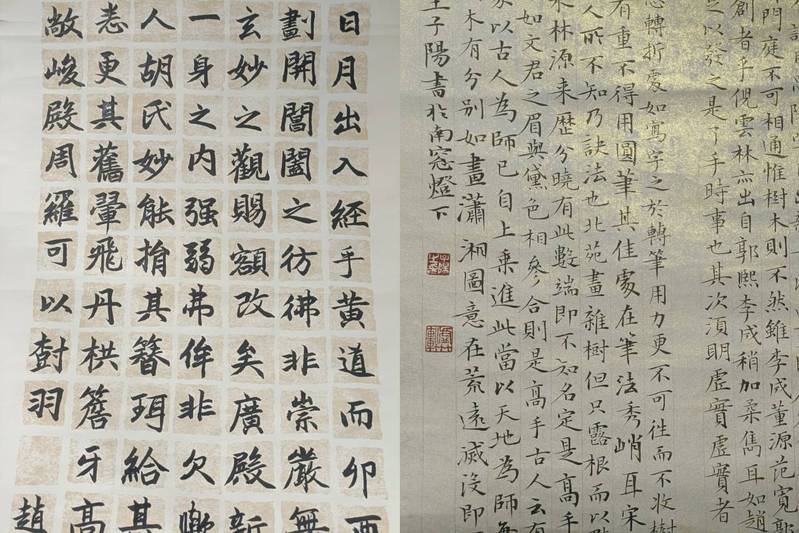 日月出入經乎黃道而卯酉
劃開閶闔之彷彿非崇嚴無
玄妙之觀賜額改矣廣殿新
一身之內强弱弗侔非欠慊
人胡氏妙能捐其簪珥給其
悉更其舊翬飛丹栱簷牙高
敞峻殿周羅可以尌羽 趙
門庭不可相通惟樹木則不然雖李成董源范寬郭
創者乎倪雲林亦出自郭熙李成稍加柔雋耳如趙
之以發之是了手時事也其次須明虛實虛實者
轉折處如寫字之於轉筆用力更不可往而不收樹
有重不得用圓筆其佳處在筆法秀峭耳宋
人所不知乃訣法也北苑畫雜樹但只露根而以點
木林源来歷分曉有此數端即不知名定是高手
如文君之眉與黛色相參合則是高手古人云有
家以古人為師已自上乘進此當以天地為師每
木有分別如畫瀟湘圖意在荒遠滅沒即
王子陽書於南窓燈下